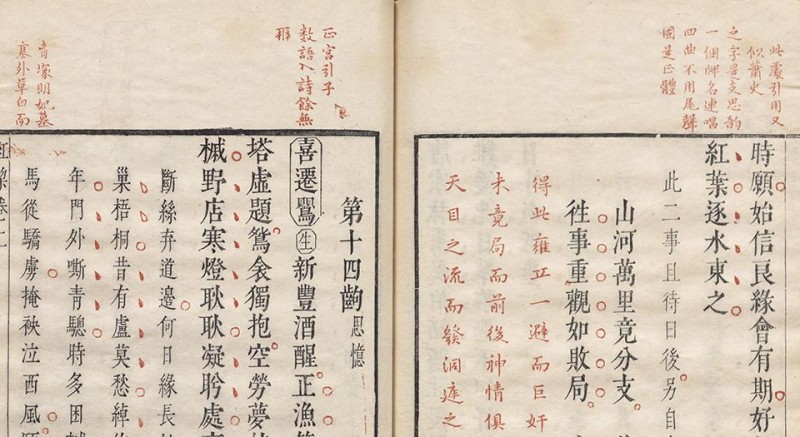 此處引用又
似蕭史
之字是支思韵
一個牌名連唱
四曲不用尾聲
固是正體
時願始信良緣會有期好
紅葉逐水東之
此二事且待日後另自
山河萬里竟分支
徃事重觀如敗局
得此雍正一避而巨奸
未竟局而前後神情俱
天目之流而發洞庭之
正宮引子
數語入詩餘無
辨
青塚明妃墓
塞外草白而
第十四齣 思憶
喜遷鶯 生 新豐酒醒正漁
塔虛題鴛衾獨抱空勞夢
槭野店寒燈耿耿凝聆處
斷絲弃道邊何日緣長
巢梧桐昔有盧莫愁綽
年門外嘶青驄時多困
馬從驕虜掩袂泣西風